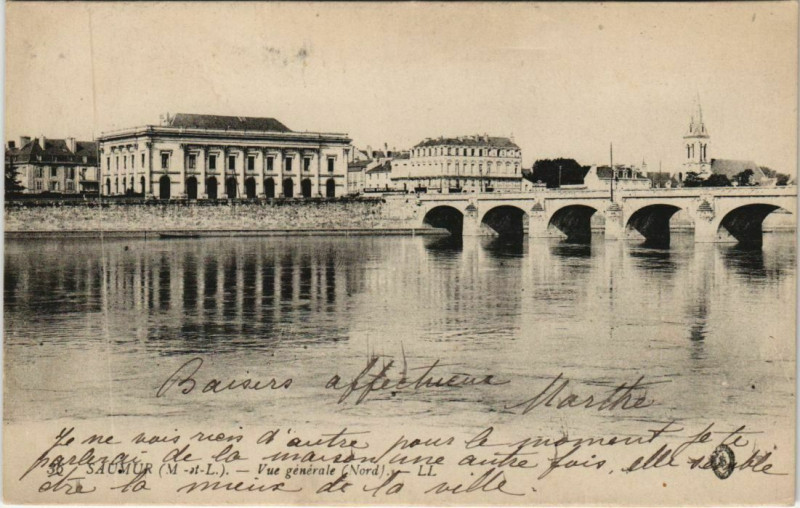 Baisers affectueux Marthe
Je ne vois rien d'autre pour le moment. Je te
parlerai de la maison une autre fois, elle semble
56 SAUMUR (M.-et-L.). — Vue générale (Nord). — LL
être la mieux de la ville.